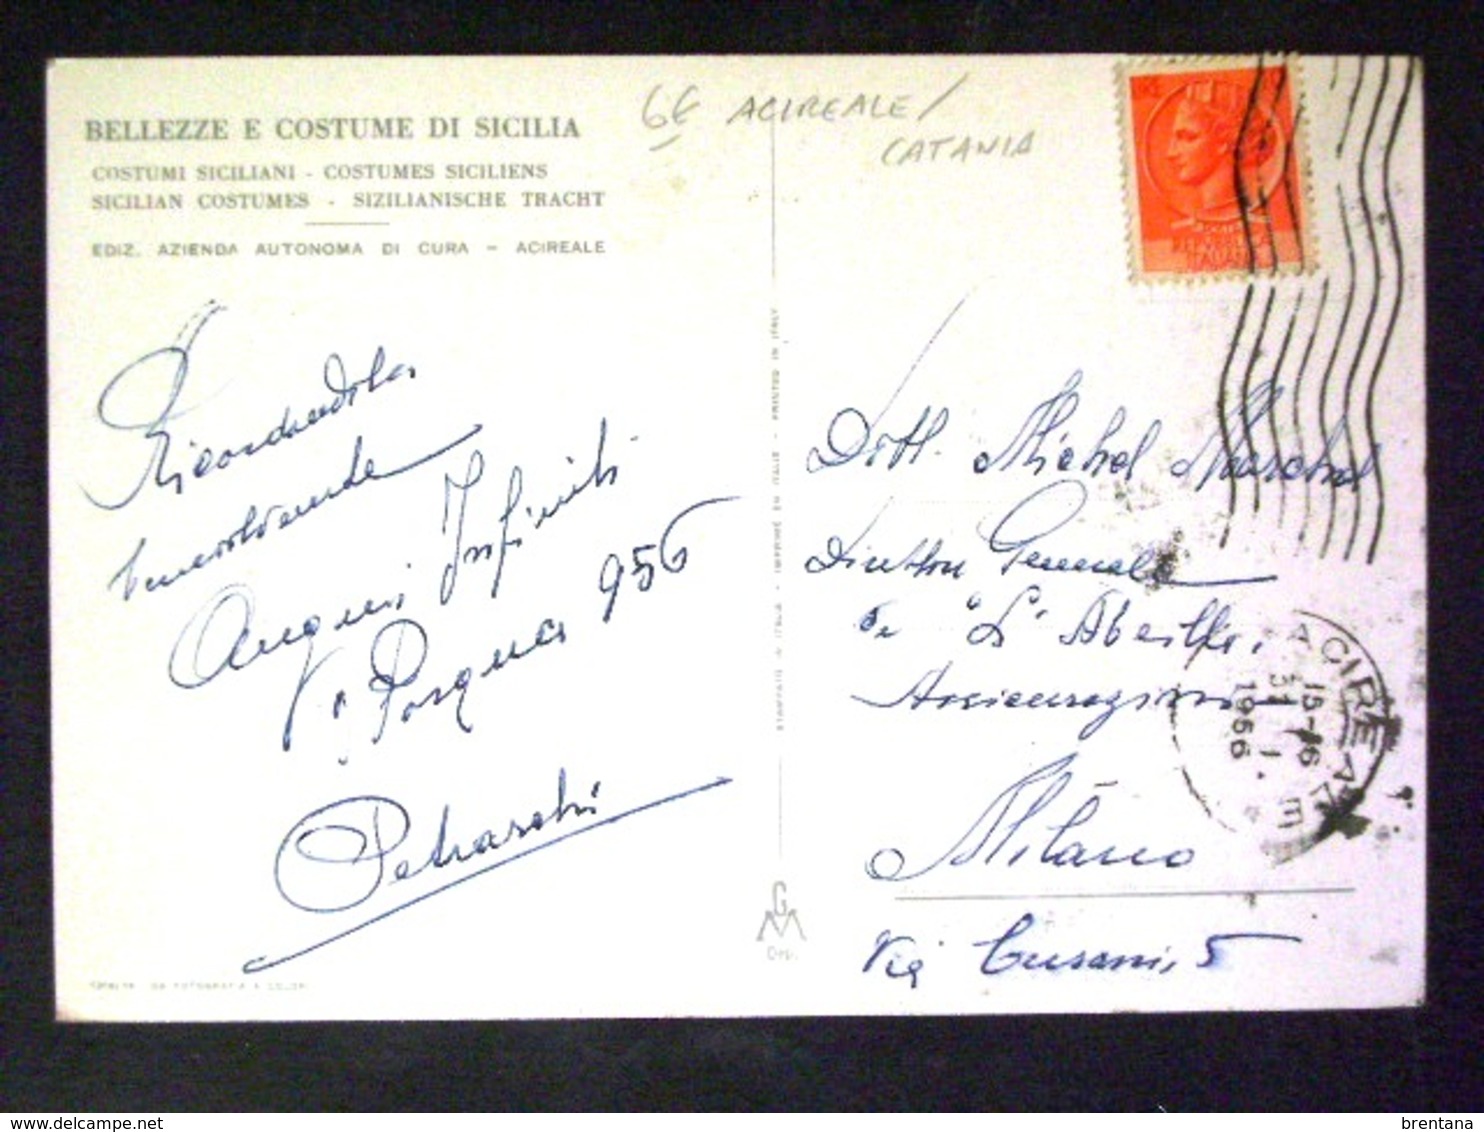 BELLEZZE E COSTUME DI SICILIA
COSTUMI SICILIANI - COSTUMES SICILIENS
SICILIAN COSTUMES - SIZILIANISCHE TRACHT
EDIZ. AZIENDA AUTONOMA DI CURA - ACIREALE
66 ACIREALE/
CATANIA
REPUBBLICA
ITALIANA
Ricordandola
Auguri Infiniti
Pasqua 956
Petraschi
STAMPATO IN ITALIA - IMPRIMÉ EN ITALIE - PRINTED IN ITALY
Dott. Michel
Direttore Generale
de "L'Abeille"
Assicurazioni
Milano
Via Cusani, 5
ACIREALE
15-16
31 1
1956
GM
DA FOTOGRAFIA A COLORI
brentana